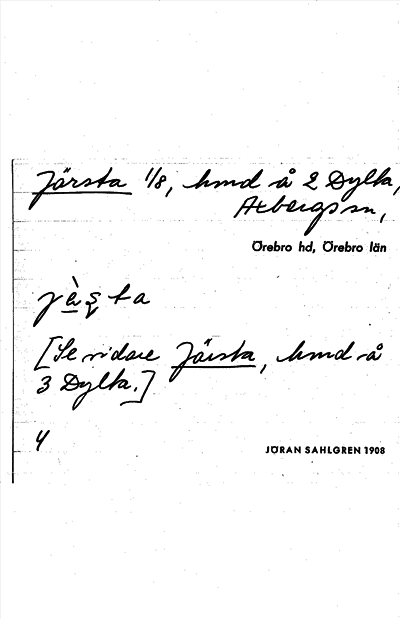 Järsta 1/8, hmd å 2 Dylta,
Axbergs sn,
Örebro hd, Örebro län
jèṣta
[Se vidare Järsta, hmd å
3 Dylta.]
4
JÖRAN SAHLGREN 1908